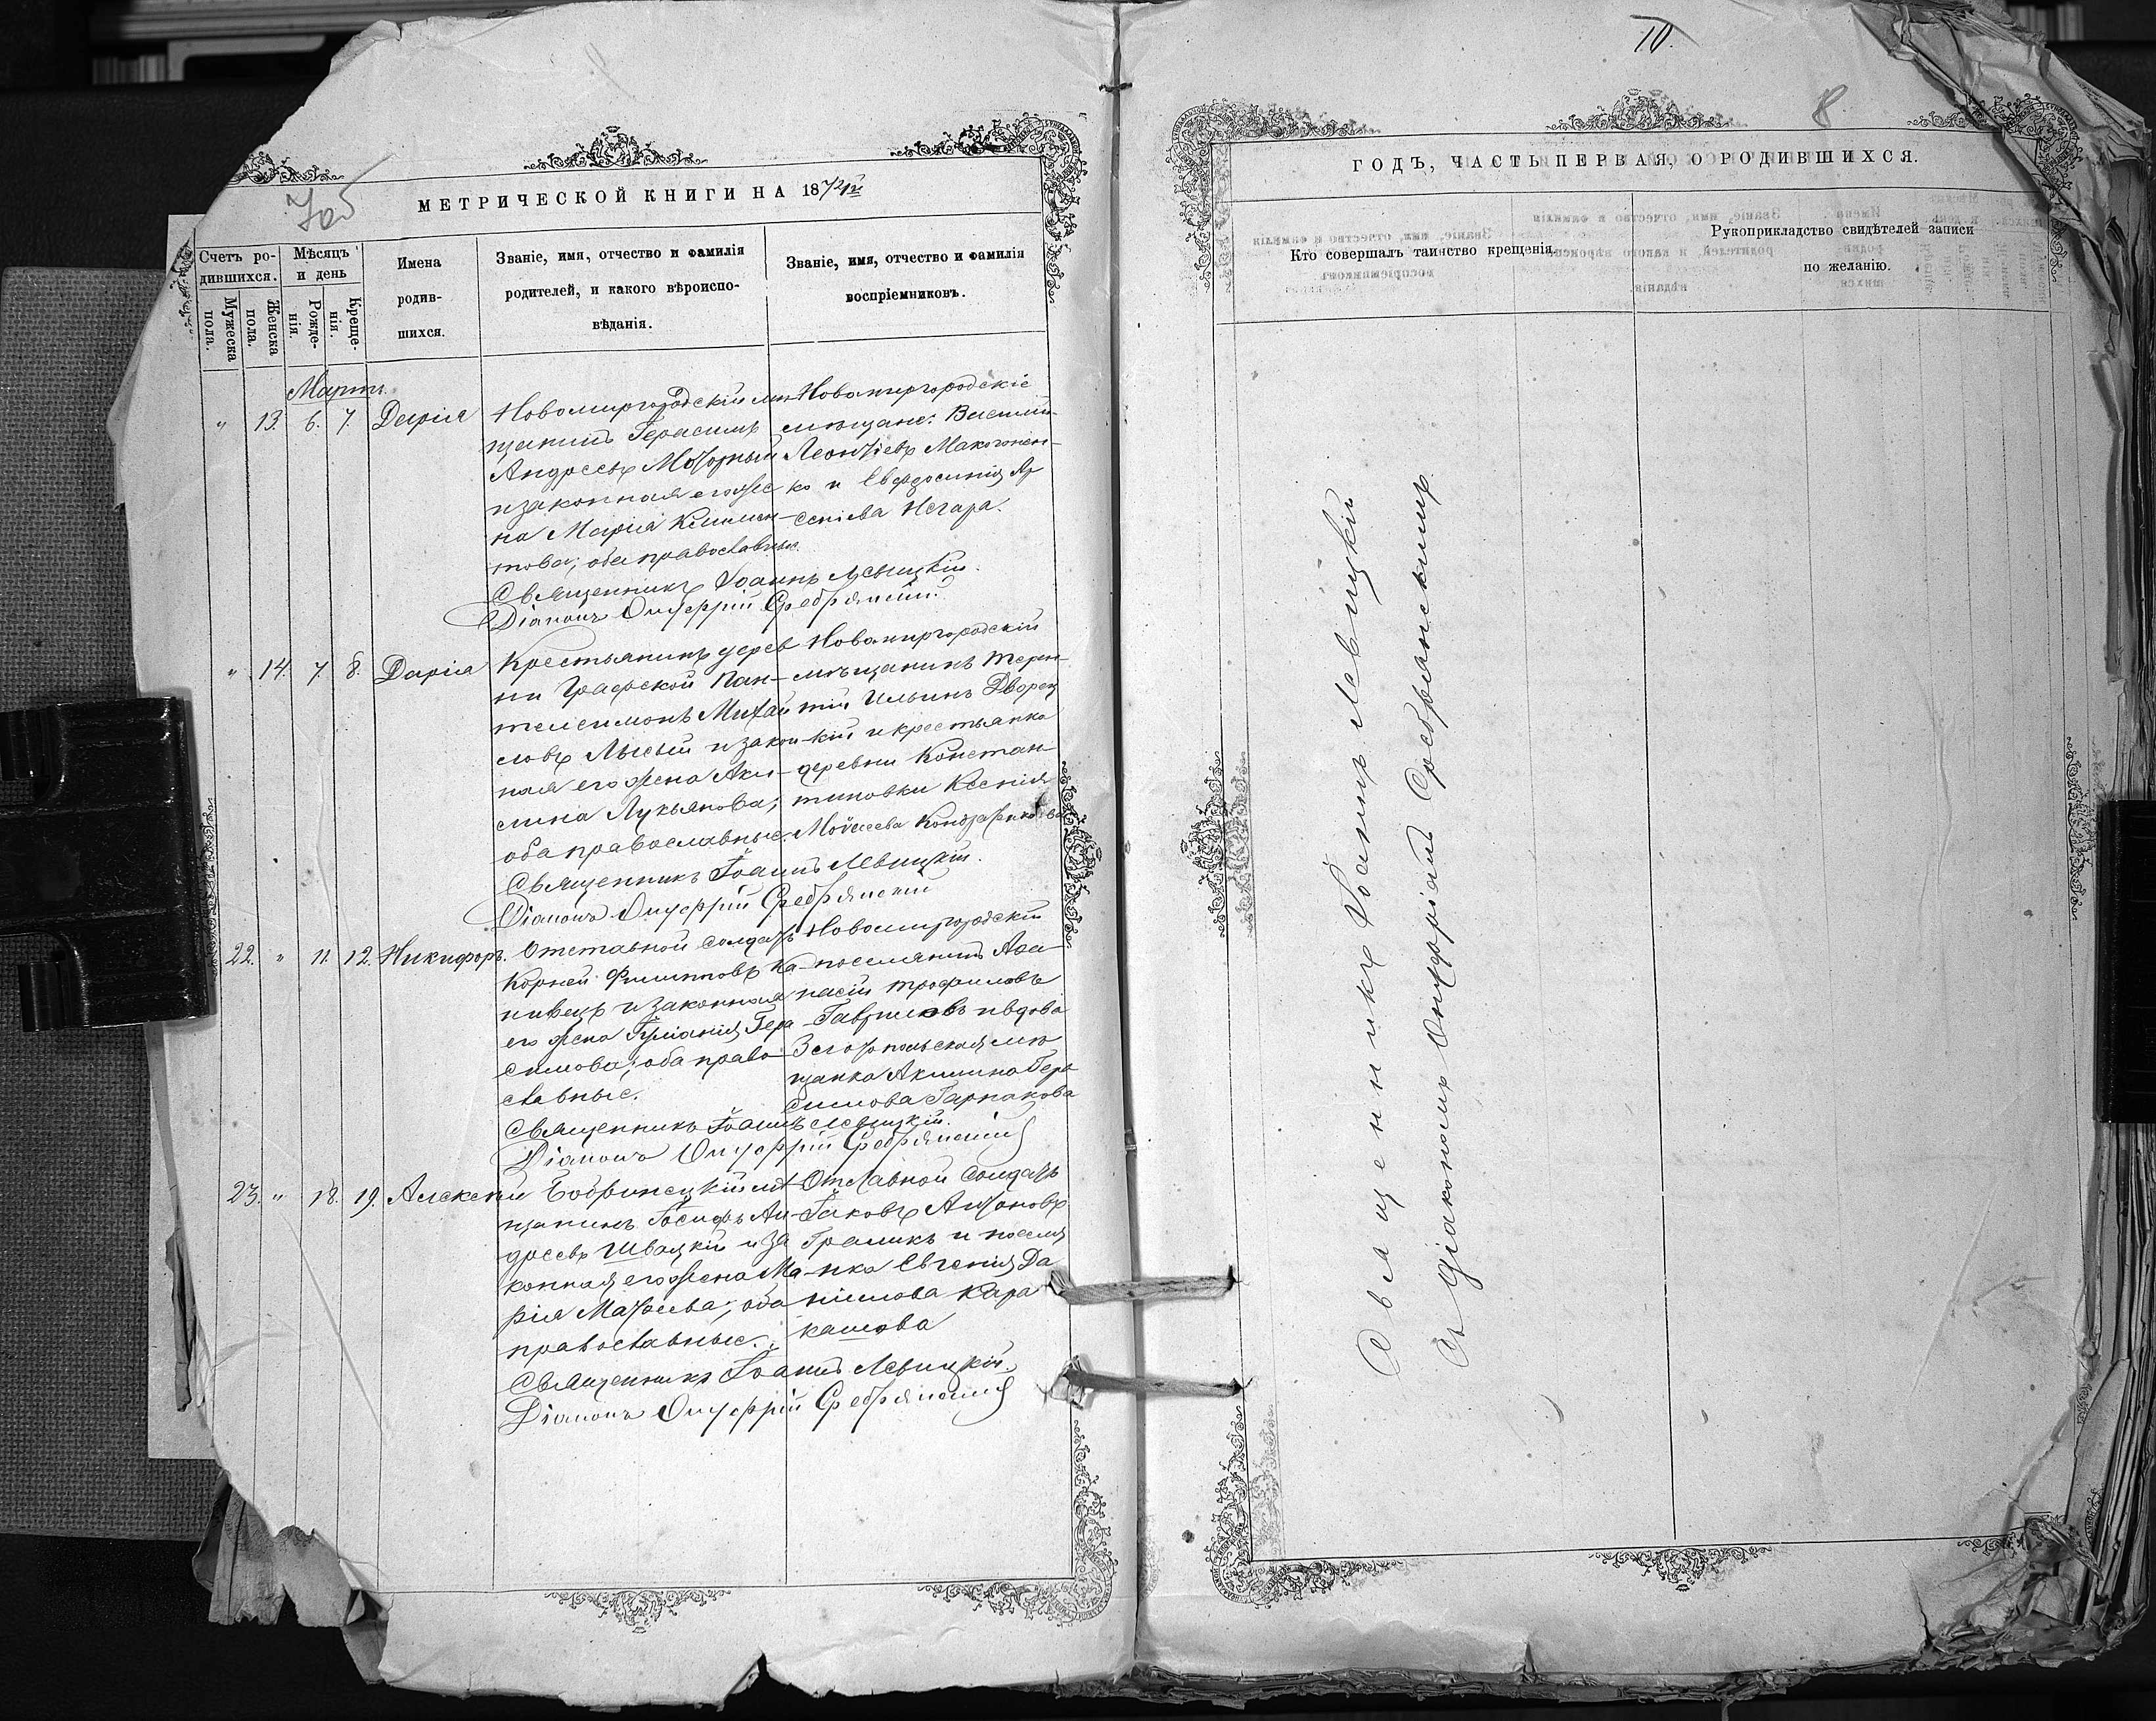 705
МЕТРИЧЕСКОЙ КНИГИ НА 1872й
Счетъ ро-
дившихся.
Мѣсяцъ
и день
Мужеска
пола.
Женска
пола.
Рожде-
нія.
Креще-
нія.
Имена
родив-
шихся.
Званіе, имя, отчество и фамилія
родителей, и какого вѣроиспо-
вѣданія.
Званіе, имя, отчество и фамилія
воспріемниковъ.
Мартъ.
" 13. 6. 7. Дарія
Новомиргородскій мѣ-
щанинъ Герасимъ
Андреевъ
и законная его же-
на Марія Климен-
това; оба православные.
Новомиргородскіе
мѣщане: Василій
Леонтіевъ Макогонен-
ко и Евфросинія Ар
сеніева Негара.
Священникъ Іоаннъ Левицкій.
Діаконъ Онуфрій Сребрянскій.
" 14. 7. 8. Дарія
Крестьянинъ дерев
ни Графской Пан-
телеимонъ Михай
ловъ Лысый и закон-
ная его жена Аки-
лина Лукьянова;
оба православные.
Новомиргородскій
мѣщанинъ Терен-
тій Ильинъ Дворец
кій и крестьянка
деревни Констан-
тиновки Ксенія
Моисеева
Священникъ Іоаннъ Левицкій.
Діаконъ Онуфрій Сребрянскій
22. " 11. 12. Никифоръ.
Отставной солдатъ
Корней Филипповъ Ка-
нивецъ и законная
его жена Гера
симова; оба право
славные.
Новомиргородскій
поселянинъ Афа
насій Трофимовъ
Гавриловъ и вдова
мѣ
щанка Акилина Гера
симова Гарнакова
Священникъ Іоаннъ Левицкій.
Діаконъ Онуфрій Сребрянскій
23. " 18. 19. Алексѣй
Бобринецкій мѣ
щанинъ Іосифъ Ан-
дреевъ Швацкій и за
конная его жена Ма-
рія Матѳеева; оба
православные.
Отставной солдатъ
Іаковъ Антоновъ
Грамикъ и поселя
нка Евгенія Да
ніилова Кара
кашова
Священникъ Іоаннъ Левицкій.
Діаконъ Онуфрій Сребрянскій
10.
8
ГОДЪ, ЧАСТЬ ПЕРВАЯ, О РОДИВШИХСЯ.
Кто совершалъ таинство крещенія.
Рукоприкладство свидѣтелей записи
по желанію.
Священникъ Іоаннъ Левицкій
Съ діакономъ Онуфріемъ Сребрянскимъ